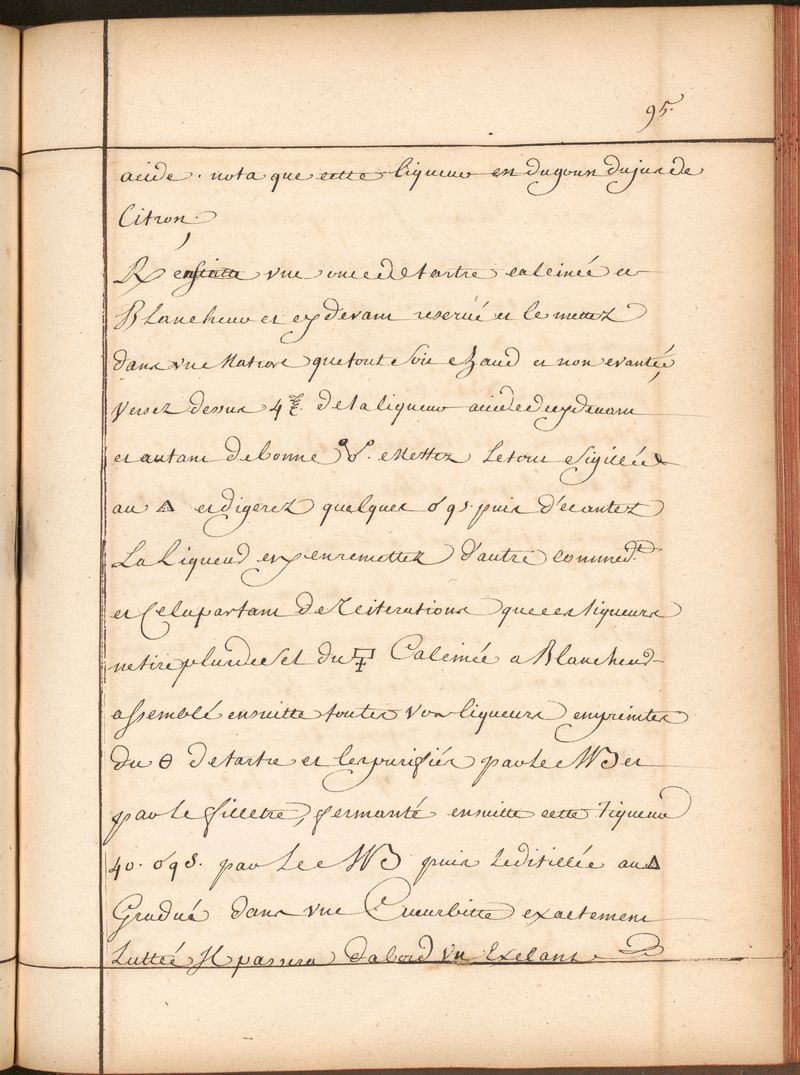 95.
acide. nota que cette liqueur en du goun du jus de
Citron.
R ensuitte vne once de tartre calcinée a
Blancheur et cy devant reservé et le mettez
dans vne Matrae que tout soit chaud et non evantée,
versez dessus 4 de la liqueur acide de cy devant
et autant de bonne Mettez le tout sigillée
au 🜂 et digerez quelques puis d'ecantez
La Liqueur et y en remettez d'autre comme d.t
et Cela par tant de Reiterations que ces liqueurs
ne tire plus de sel du 🜿 Calcinée a Blancheur
assemblé ensuitte toutes vos liqueurs empreintes
du θ de tartre et les purifiés par le MB et
par le filletre, fermanté ensuitte cette liqueur
40. par le MB puis le distillée au 🜂
Gradué dans vne Cucurbitte exactement
Luttéé Il passera dabord vn Exelans